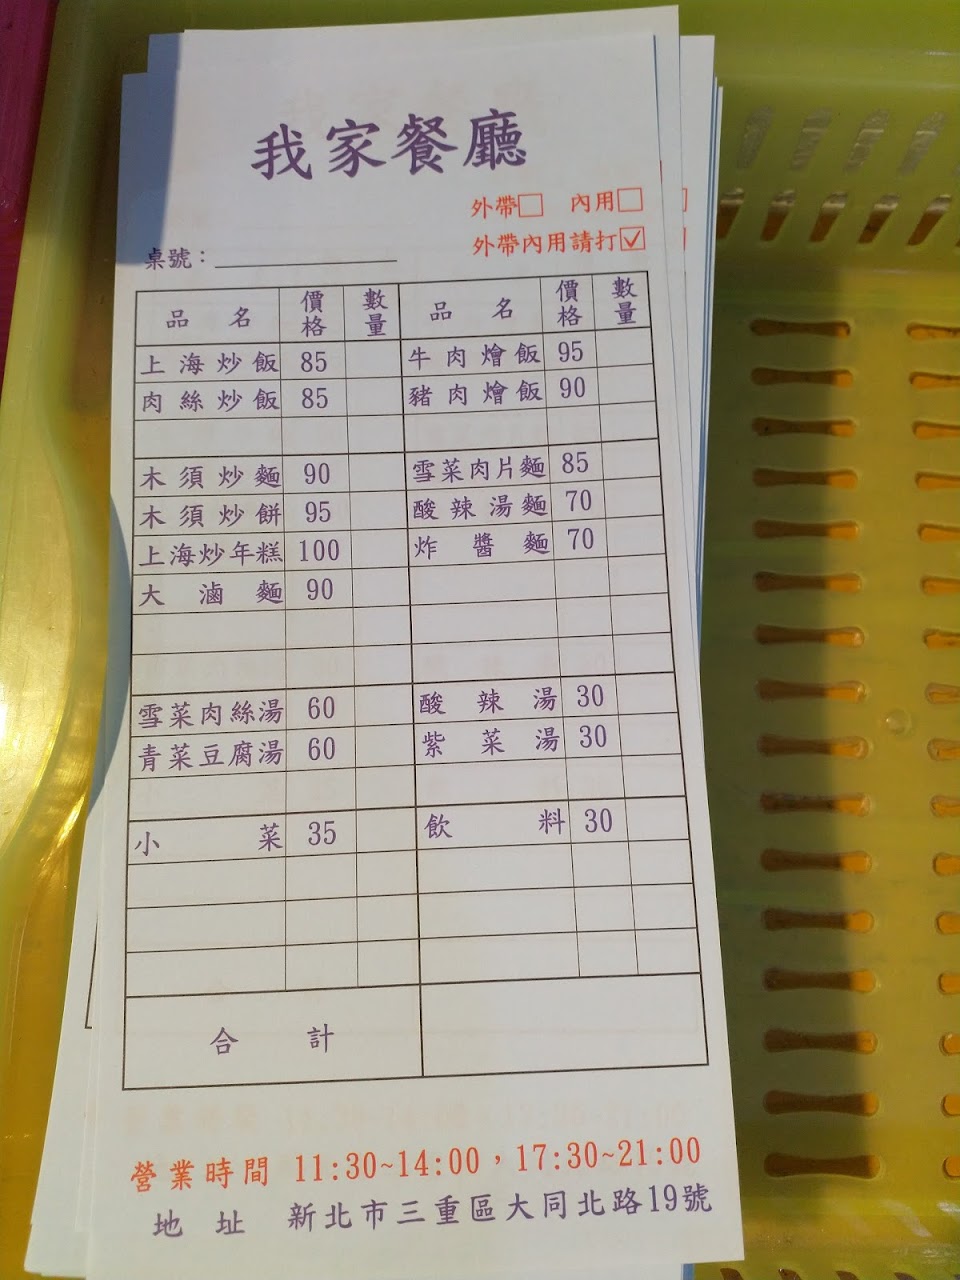 我家餐廳
外帶□ 內用□
外帶內用請打☑
桌號：
品名 價格 數量 品名 價格 數量
上海炒飯 85 牛肉燴飯 95
肉絲炒飯 85 豬肉燴飯 90
木須炒麵 90 雪菜肉片麵 85
木須炒餅 95 酸辣湯麵 70
上海炒年糕 100 炸醬麵 70
大滷麵 90
雪菜肉絲湯 60 酸辣湯 30
青菜豆腐湯 60 紫菜湯 30
小菜 35 飲料 30
合計
營業時間 11:30~14:00，17:30~21:00
地址 新北市三重區大同北路19號